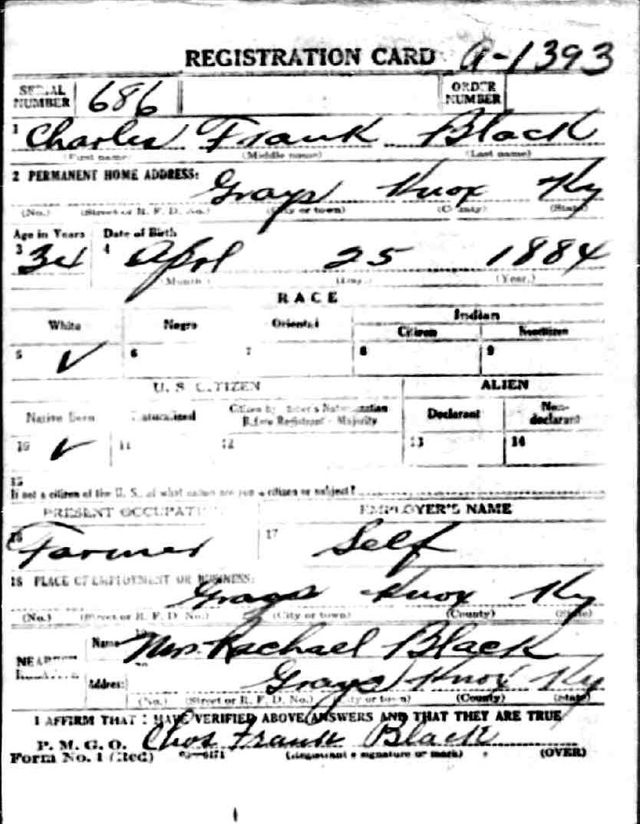 REGISTRATION CARD A-1393
SERIAL NUMBER 686 ORDER NUMBER
1 Charles Frank Black
(First name) (Middle name) (Last name)
2 PERMANENT HOME ADDRESS: Grays Knox Ky
(No.) (Street or R. F. D. No.) (City or town) (County) (State)
Age in Years Date of Birth
3 34 4 Apr 25 1884
(Month) (Day) (Year.)
RACE
White Negro Oriental Indian
Citizen Noncitizen
5 ✓ 6 7 8 9
U. S. CITIZEN ALIEN
Native Born Naturalized Citizen by Father's Naturalization Before Registrant's Majority Declarant Non-declarant
10 ✓ 11 12 13 14
15
If not a citizen of the U. S., of what nation are you a citizen or subject?
PRESENT OCCUPATION EMPLOYER'S NAME
16 Farmer 17 Self
18 PLACE OF EMPLOYMENT OR BUSINESS:
Grays Knox Ky
(No.) (Street or R. F. D. No.) (City or town) (County) (State)
NEAREST RELATIVE Name 19 Mrs. Rachael Black
Address: 20 Grays Knox Ky
(No.) (Street or R. F. D. No.) (City or town) (County) (State)
I AFFIRM THAT I HAVE VERIFIED ABOVE ANSWERS AND THAT THEY ARE TRUE
P. M. G. O.
Form No. 1 (Red) Chas Frank Black
(Registrant's signature or mark) (OVER)